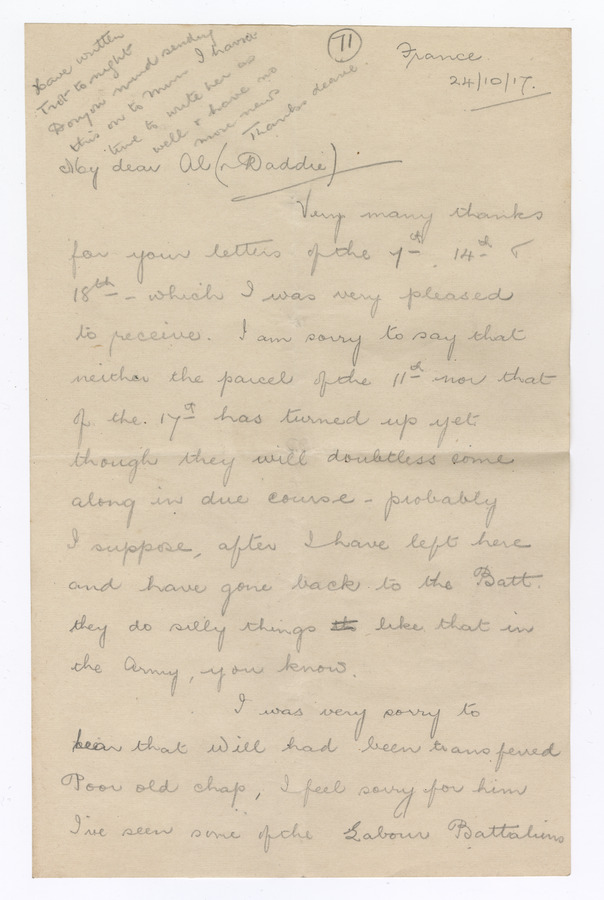 Have written
Trot to night
Do you mind sending
this on to Mum I haven't
time to write her as
well & have no
more news
Thanks dearie.
71
France
24/10/17.
My dear Al (& Daddie)
Very many thanks
for your letters of the 7th, 14th &
18th - which I was very pleased
to receive. I am sorry to say that
neither the parcel of the 11th nor that
of the 17th has turned up yet
though they will doubtless come
along in due course - probably
I suppose, after I have left here
and have gone back to the Batt.
they do silly things like that in
the Army, you know.
I was very sorry to
hear that Will had been transferred
Poor old chap, I feel sorry for him
I've seen some of the Labour Battalions